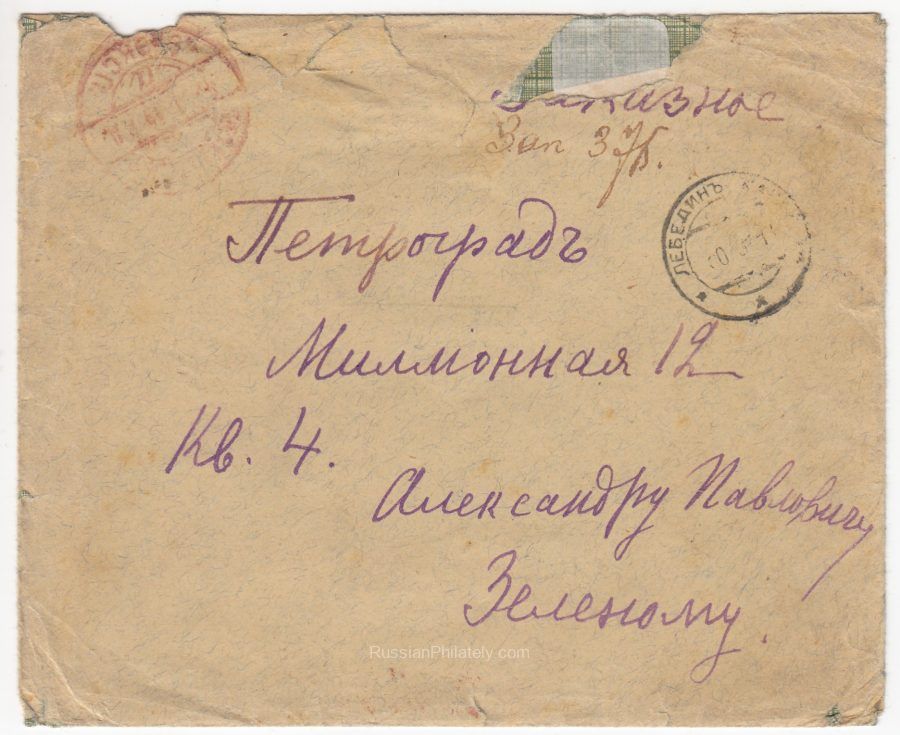 Заказное
Зап 376.
ЛЕБЕДИНЪ
Петроградъ
Миллiонная 12
Кв. 4.
Александру Павловичу
Зеленому.
RussianPhilately.com